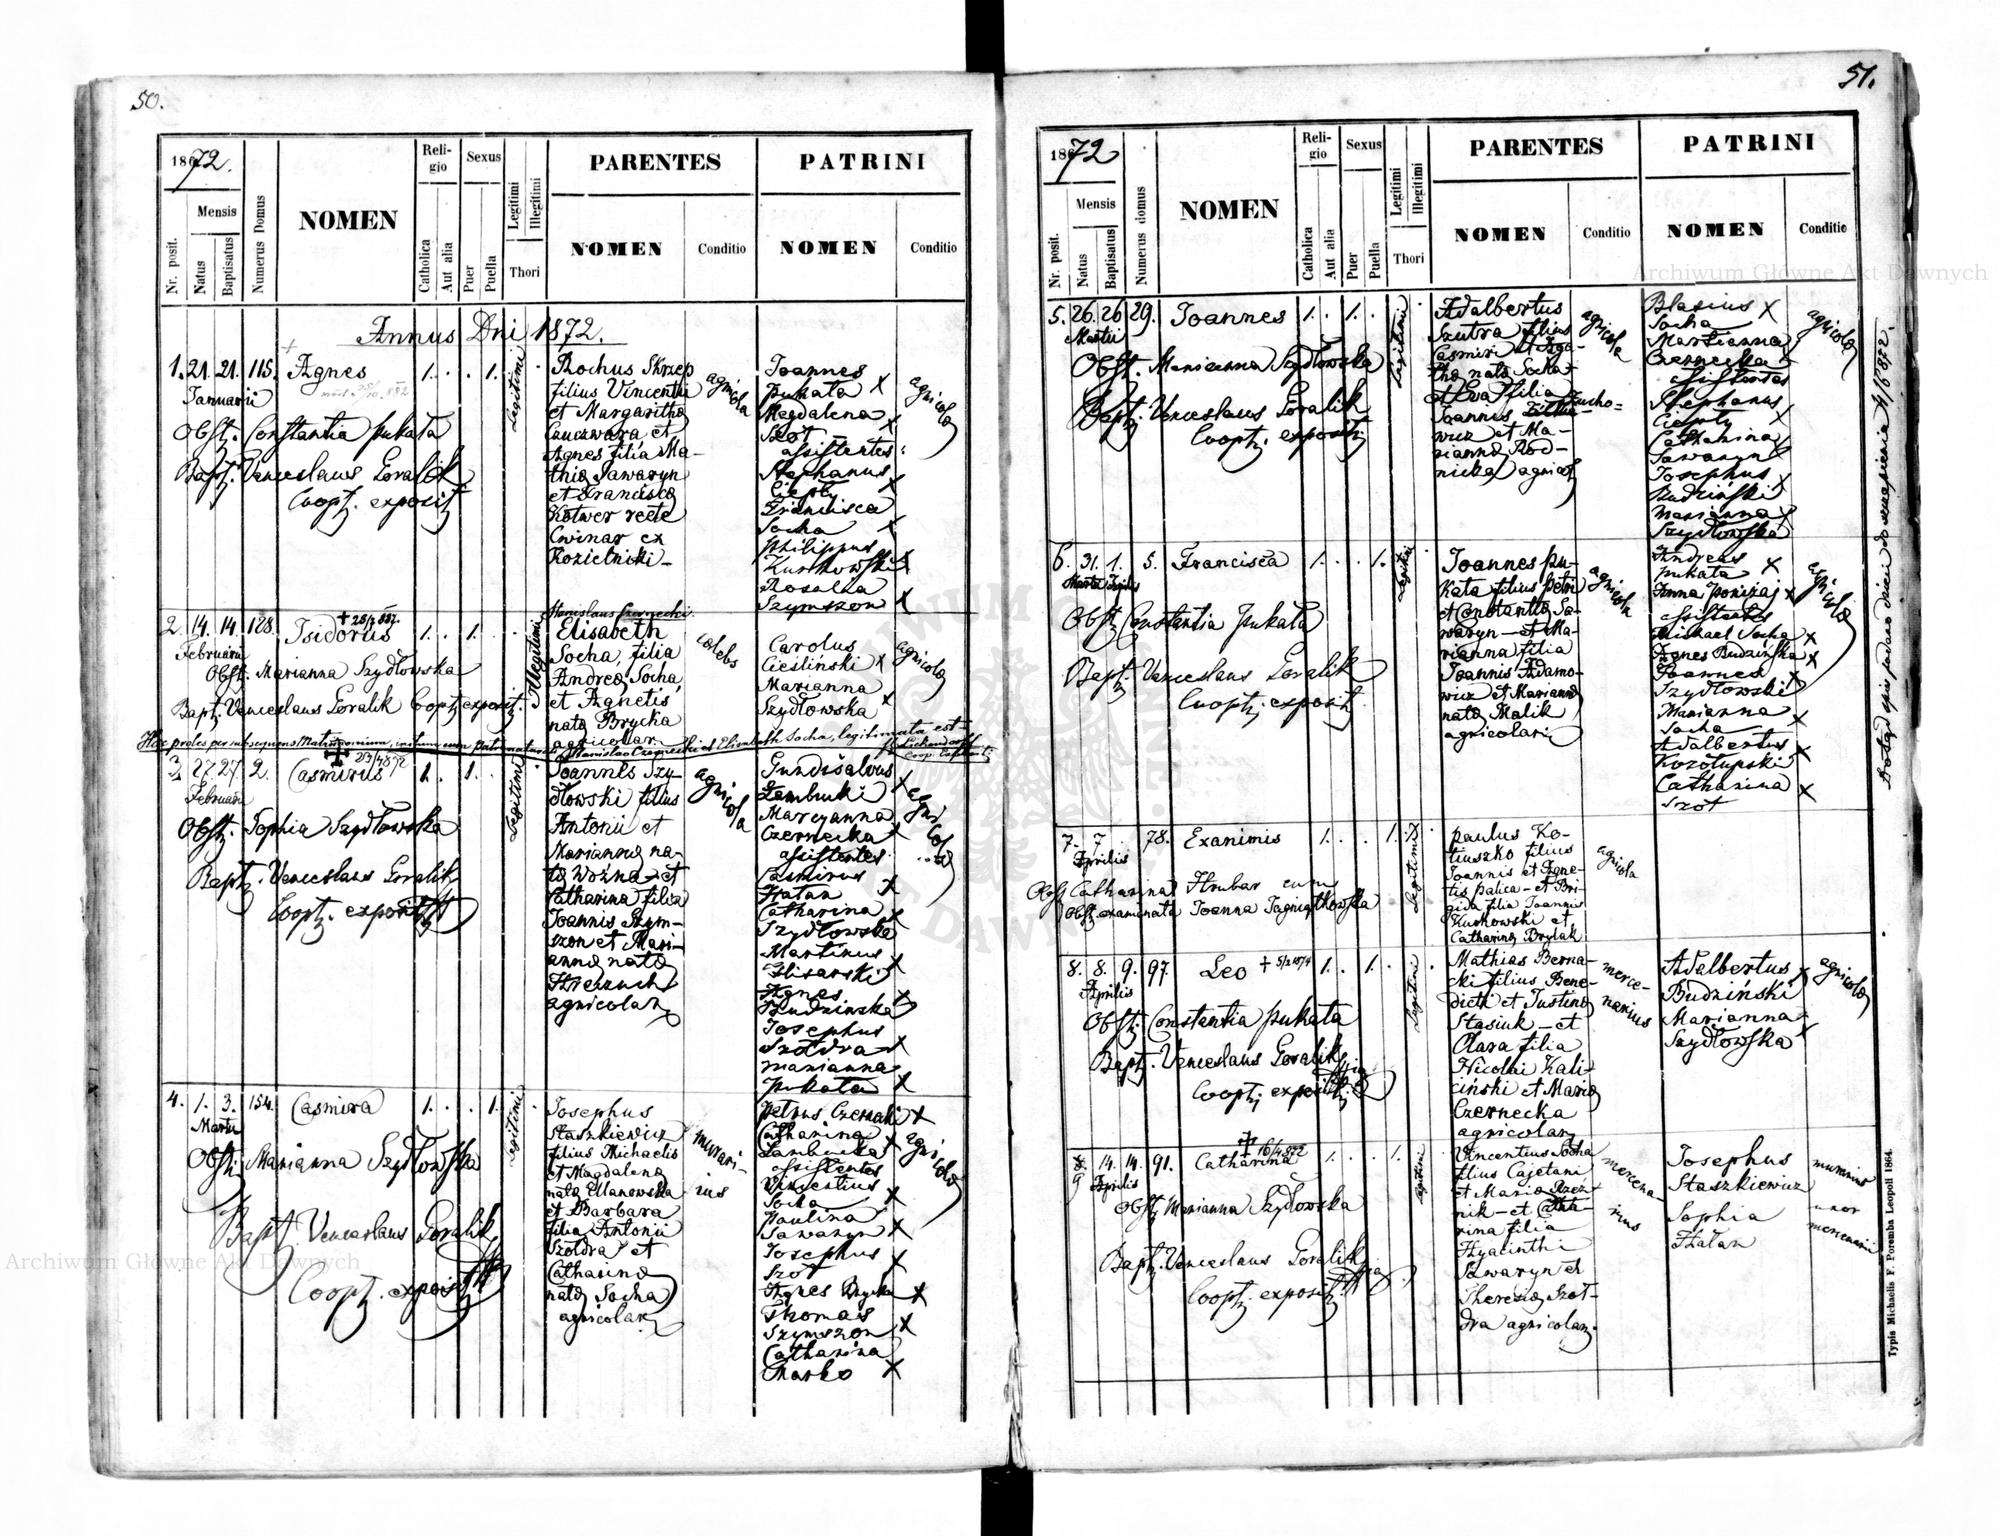 50.
1872.
Nr. posit.
Mensis
Natus
Baptisatus
Numerus Domus
NOMEN
Reli-
gio
Catholica
Aut alia
Sexus
Puer
Puella
Legitimi
Illegitimi
Thori
PARENTES
NOMEN
Conditio
PATRINI
NOMEN
Conditio
Annus Dni 1872.
1. 21. 21. 115. Agnes 1. . . 1.
Januarii
Obst. Constantia Pukata
Bapt. Venceslaus Goralik
Coopt. exposit
Legitimi
Rochus Skrzep
filius Vincentii
et Margaritha
et
Agnes filia Ma-
thia Sawaryn
et Francisca
Kotwer recte
Cwinar ex
Kozielniki
agricola
Joannes
Pukata X
Magdalena
Szot X
assistentes:
Stephanus
Ciepły X
Francisca
Socha X
Philippus
Kurkowski X
Rosalia
Szymszon X
agricolæ
2. 14. 14. 128. Isidorus 1. . 1.
Februarii
Obst. Marianna Szydłowska
Bapt. Venceslaus Goralik Coopt. exposit.
Illegitimi
Stanislaus Czernecki.
Elisabeth
Socha, filia
Andreæ Socha,
et Agnetis
nata Brycka
agricolar.
cœlebs
Carolus
Cieśliński X
Marianna
Szydłowska X
agricolæ
Hæc proles per subsequens Matrimonium, initum cum patre naturali Stanislao Czernecki et Elisabeth Socha, legitimata est
3. 27. 27. 2. Casmirus 1. . 1.
Februarii
Obst. Sophia Szydłowska
Bapt. Venceslaus Goralik
Coopt. exposit
Legitimi
Joannes Szy-
dłowski filius
Antonii et
Marianna na-
ta Woźna et
Catharina filia
Joannis Szym-
szon et Mari-
anna nata
agricolar.
agricola
Gundisalvus
X
Marcyanna
Czernecka X
assistentes
Casmirus
Hałan X
Catharina
Szydłowska X
Martinus
X
Agnes
Budzinska X
Josephus
Szołdra X
Marianna
Pukata X
agricolæ
4. 1. 3. 154. Casmira 1. . . 1.
Martii
Obst. Marianna Szydłowska
Bapt. Venceslaus Goralik
Coopt. exposit
Legitimi
Josephus
Staszkiewicz
filius Michaelis
et Magdalena
nata Manowska
et Barbara
filia Antonii
Szołdra et
Catharina
nata Socha
agricolar.
murari-
us
Petrus X
Catharina
X
assistentes
Vincentius
Socha X
Paulina
Sawaryn X
Josephus
Szot X
Agnes Brycka X
Thomas
Szymszon X
Catharina
Marko X
agricolæ
51.
1872
Nr. posit.
Mensis
Natus
Baptisatus
Numerus domus
NOMEN
Reli-
gio
Catholica
Aut alia
Sexus
Puer
Puella
Legitimi
Illegitimi
Thori
PARENTES
NOMEN
Conditio
PATRINI
NOMEN
Conditio
5. 26. 26 29. Joannes 1. . 1.
Martii
Obst. Marianna Szydłowska
Bapt. Venceslaus Goralik
Coopt. exposit
Legitimi
Adalbertus
Szutra filius
Casmiri et Aga-
tha nata Socha
et Eva filia
Joannis
wicz et Ma-
rianna Rod-
nicka agricol.
agricola
Blasius X
Socha
Marzianna
Czernecka X
assistentes
Stephanus
Ciepły X
Catharina
Sawaryn X
Josephus
Budziński X
Marianna
Szydłowska X
agricolæ
6. 31. 1. 5. Francisca 1. . . 1.
Martii Aprilis
Obst. Constantia Pukata
Bapt. Venceslaus Goralik
Coopt. exposit
Legitimi
Joannes Pu-
kata filius Petri
et Constantia Sa-
waryn et Ma-
rianna filia
Joannis Adamo-
wicz et Marianna
nata Malik
agricolar.
agricola
Andreas
Pukata X
Anna Poniżaj X
assistentes
Michael Socha X
Agnes Budzińska X
Joannes
Szydłowski X
Marianna
Socha X
Adalbertus
Kozołupski X
Catharina
Szot X
agricolæ
7. 7. 78. Exanimis 1. . . 1.
Aprilis
Obst. Catharina Hrubar cum
Obst. examinata Joanna Jagniątkowska
Legitimi
Paulus Ko-
tiuszko filius
Joannis et Agne-
tis Palica et Bri-
gida filia Joannis
Kurkowski et
Catharina Brylak
agricola
8. 8. 9. 97. Leo 1. . 1.
Aprilis
Obst. Constantia Pukata
Bapt. Venceslaus Goralik
Coopt. exposit
Legitimi
Mathias Berna-
cki filius Bene-
dicti et Justina
Stasiuk et
Clara filia
Nicolai Kali-
ciński et Maria
Czernecka
agricolar.
merce-
narius
Adelbertus
Budziński X
Marianna
Szydłowska X
agricolæ
9 14. 14. 91. Catharina 1. . . 1.
Aprilis
Obst. Marianna Szydłowska
Bapt. Venceslaus Goralik
Coopt. exposit
Legitimi
Vincentius Socha
filius Cajetani
et Maria Rzez-
nik et Catha-
rina filia
Hyacinthi
Sawaryn et
Theresia Szoł-
dra agricolar.
mercena-
rius
Josephus
Staszkiewicz
Sophia
Hałan
murarius
uxor
mercenarii
Typis Michaelis F. Poremba Leopoli 1864.
Archiwum Główne Akt Dawnych
Archiwum Główne Akt Dawnych